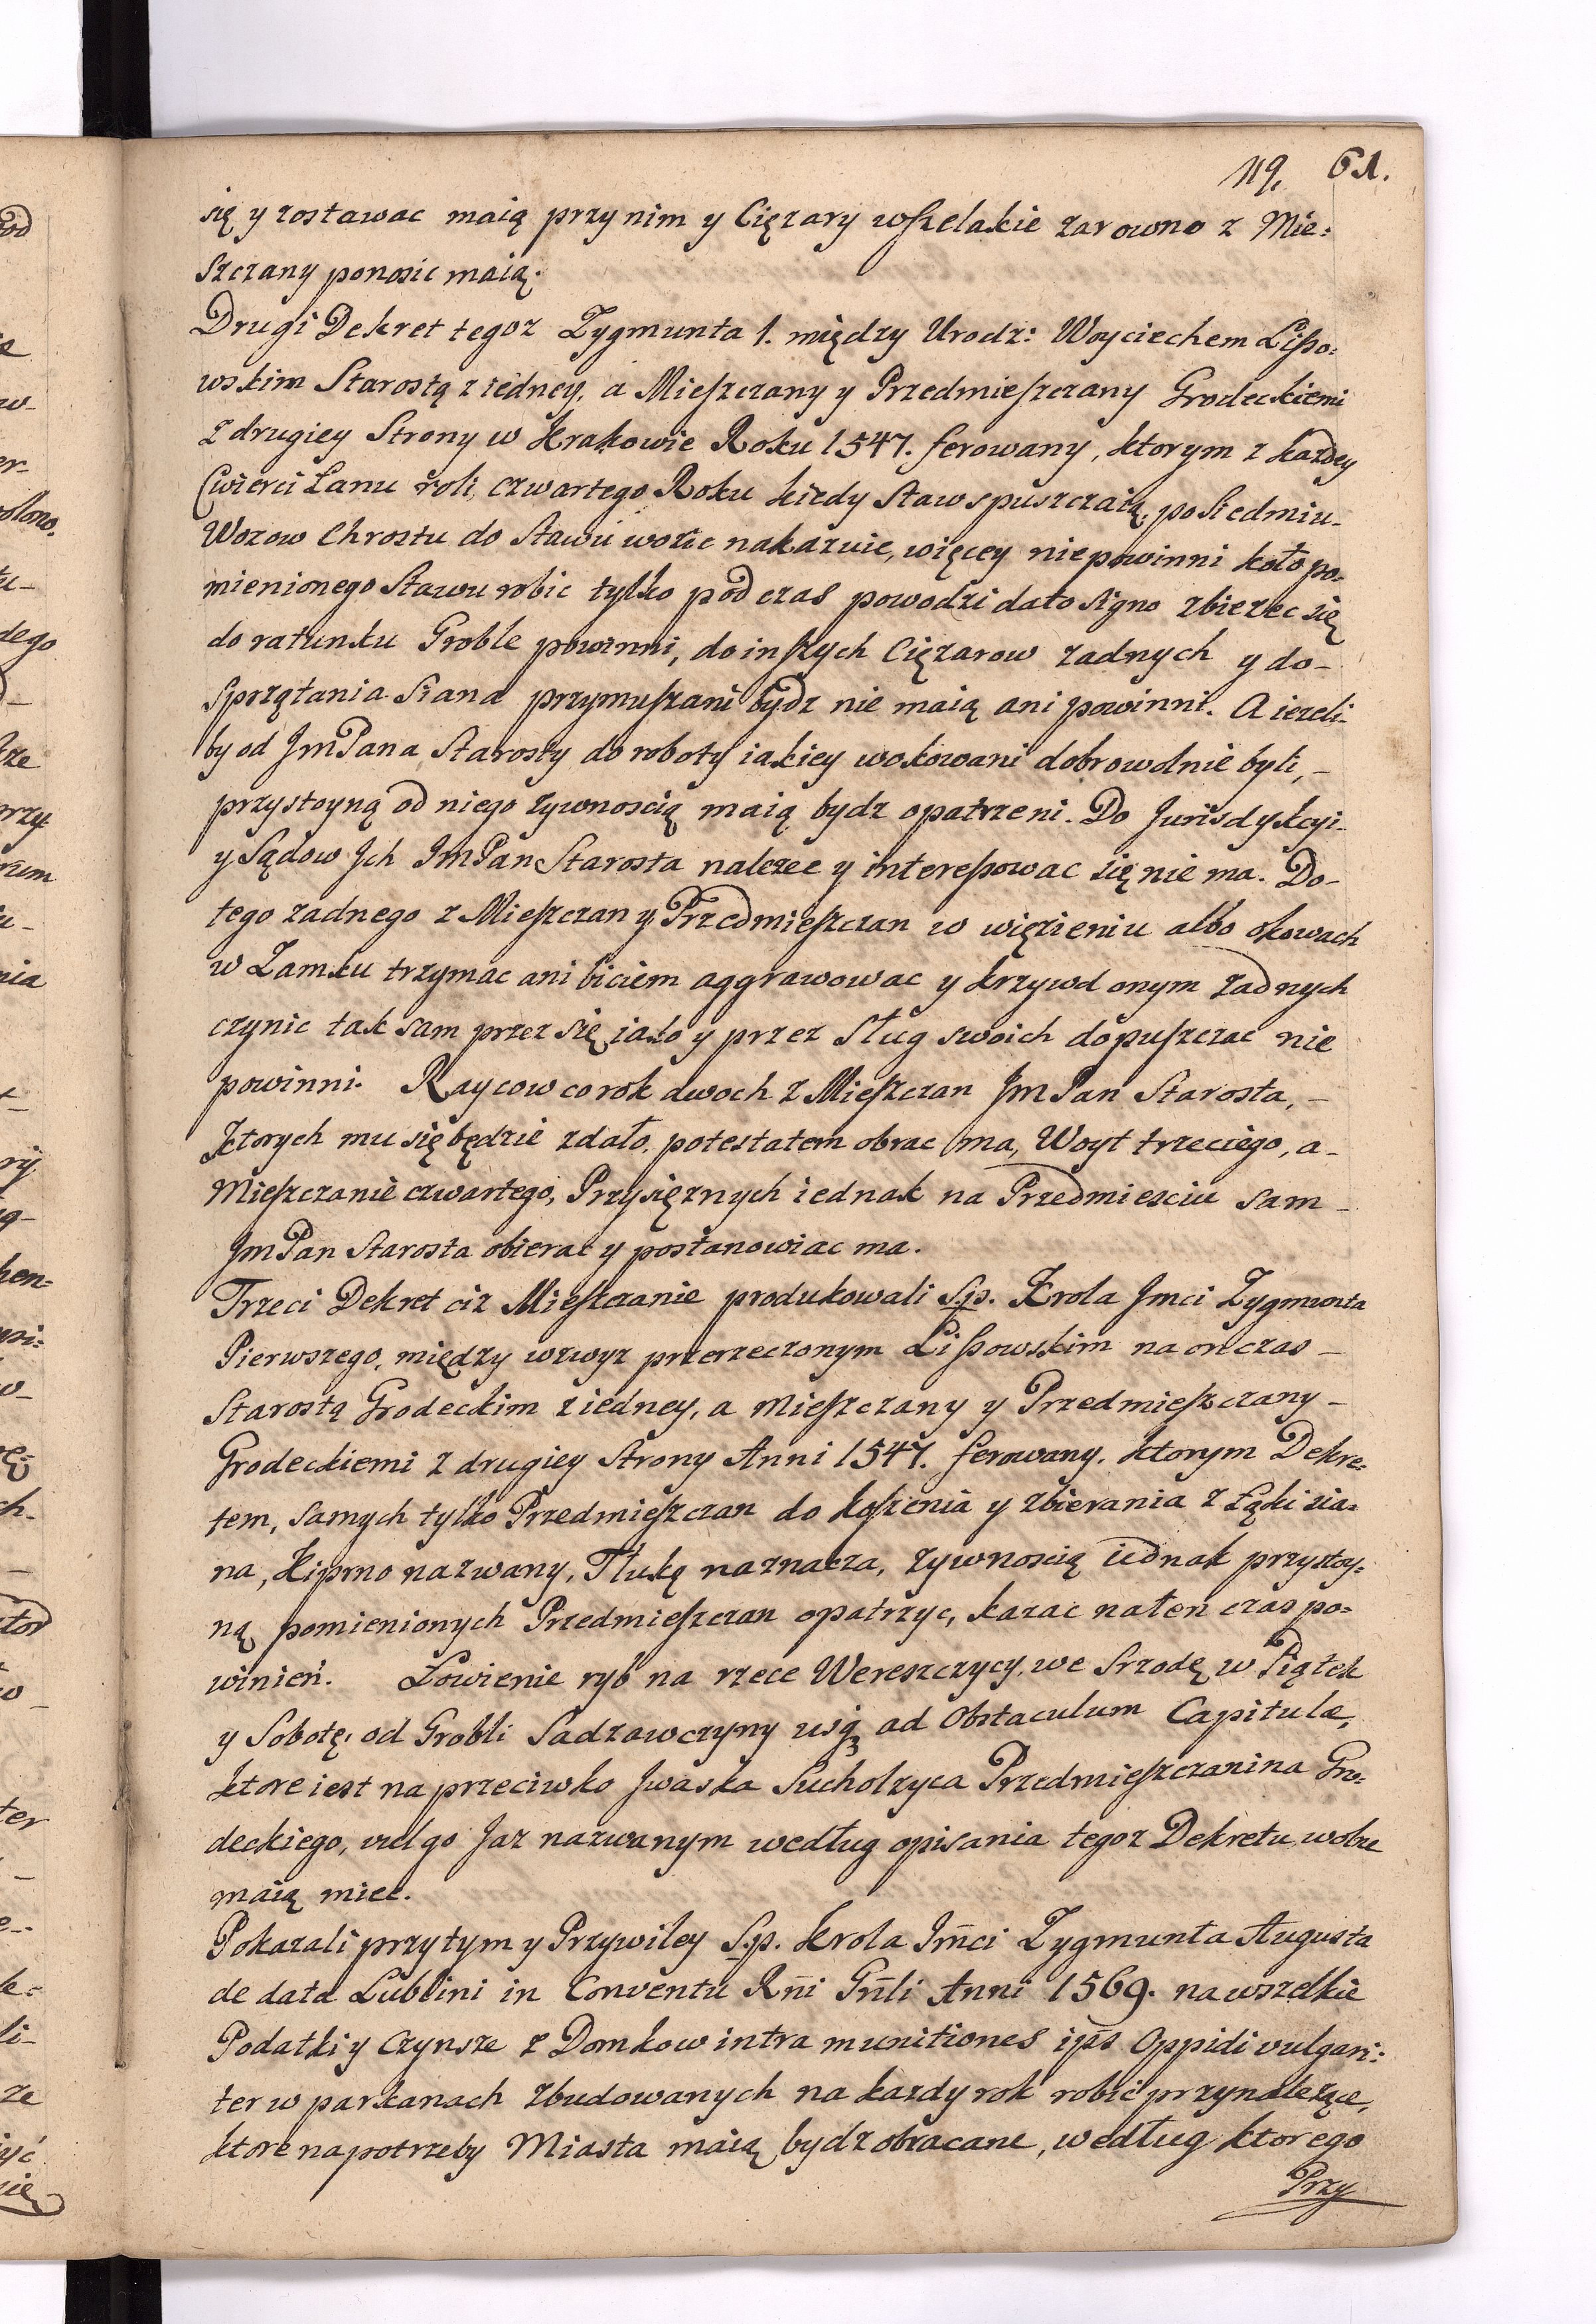 119. 61.
się y zostawac maią przy nim y Cięzary wszelakie zarowno z Mie:
szczany ponosic maią.
Drugi Dekret tegoz Zygmunta 1. między Urodz: Woyciechem Lisso:
wskim Starostą z iedney, a Mieszczany y Przedmieszczany Grodeckiemi
z drugiey Strony w Krakowie Roku 1547. ferowany, ktorym z kazdey
Cwierci Łanu roli, czwartego Roku kiedy Staw spuszczaią, po Siedmiu-
Wozow Chrostu do Stawu wozic nakazuie, więcey nie powinni koło po-
mienionego Stawu robic tylko pod czas powodzi dato signo zbiezec się
do ratunku Groble powinni, do inszych Cięzarow zadnych y do-
Sprzątania Siana przymuszani bydz nie maią ani powinni. A iezeli-
by od JmPana Starosty do roboty iakiey wokowani dobrowolnie byli, -
przystoyną od niego zywnoscią maią bydz opatrzeni. Do Jurisdykcyi-
y Sądow Jch JmPan Starosta nalezec y interessowac się nie ma. Do-
tego zadnego z Mieszczan y Przedmieszczan w więzieniu albo okowach
w Zamku trzymac ani biciem aggrawowac y krzywd onym zadnych
czynic tak sam przez się iako y przez Sług swoich dopuszczac nie
powinni. Raycow co rok dwoch z Mieszczan JmPan Starosta, -
Ktorych mu się będzie zdało, potestatem obrac ma, Woyt trzeciego, a-
Mieszczanie czwartego, Przysięznych iednak na Przedmiesciu sam -
JmPan Starosta obierac y postanowiac ma.
Trzeci Dekret ciz Mieszczanie produkowali S.p. Krola Jmci Zygmunta
Pierwszego, między wzwyz przerzeczonym Lissowskim na onczas -
Starostą Grodeckim z iedney, a Mieszczany y Przedmieszczany -
Grodeckiemi z drugiey Strony Anni 1547. ferowany, ktorym Dekre:
tem, samych tylko Przedmieszczan do koszenia y zbierania z Łąki sia:
na, Kiprno nazwany, Tłukę naznacza, zywnoscią iednak przystoy:
ną pomienionych Przedmieszczan opatrzyc, kazac na ten czas po:
winień. Łowienie ryb na rzece Wereszczycy, we Srzodę w Piątek
y Sobotę, od Grobli Sadzawczyny usq3 ad Obstaculum Capitulæ,
ktore iest na przeciwko Jwaska Sucholzyca Przedmieszczanina Gro:
deckiego, vulgo Jaz nazwanym według opisania tegoz Dekretu, wolne
maią miec.
Pokazali przytym y Przywiley S.p. Krola Jm̃ci Zygmunta Augusta
de data Lublini in Conventu Rñi Gñli Anni 1569. na wszelkie
Podatki y Czynsze z Domkow intra munitiones ip̃s Oppidi vulgari:
ter w parkanach zbudowanych na kazdy rok robić przynalezące,
ktore na potrzeby Miasta maią bydz obracane, według ktorego
Przy